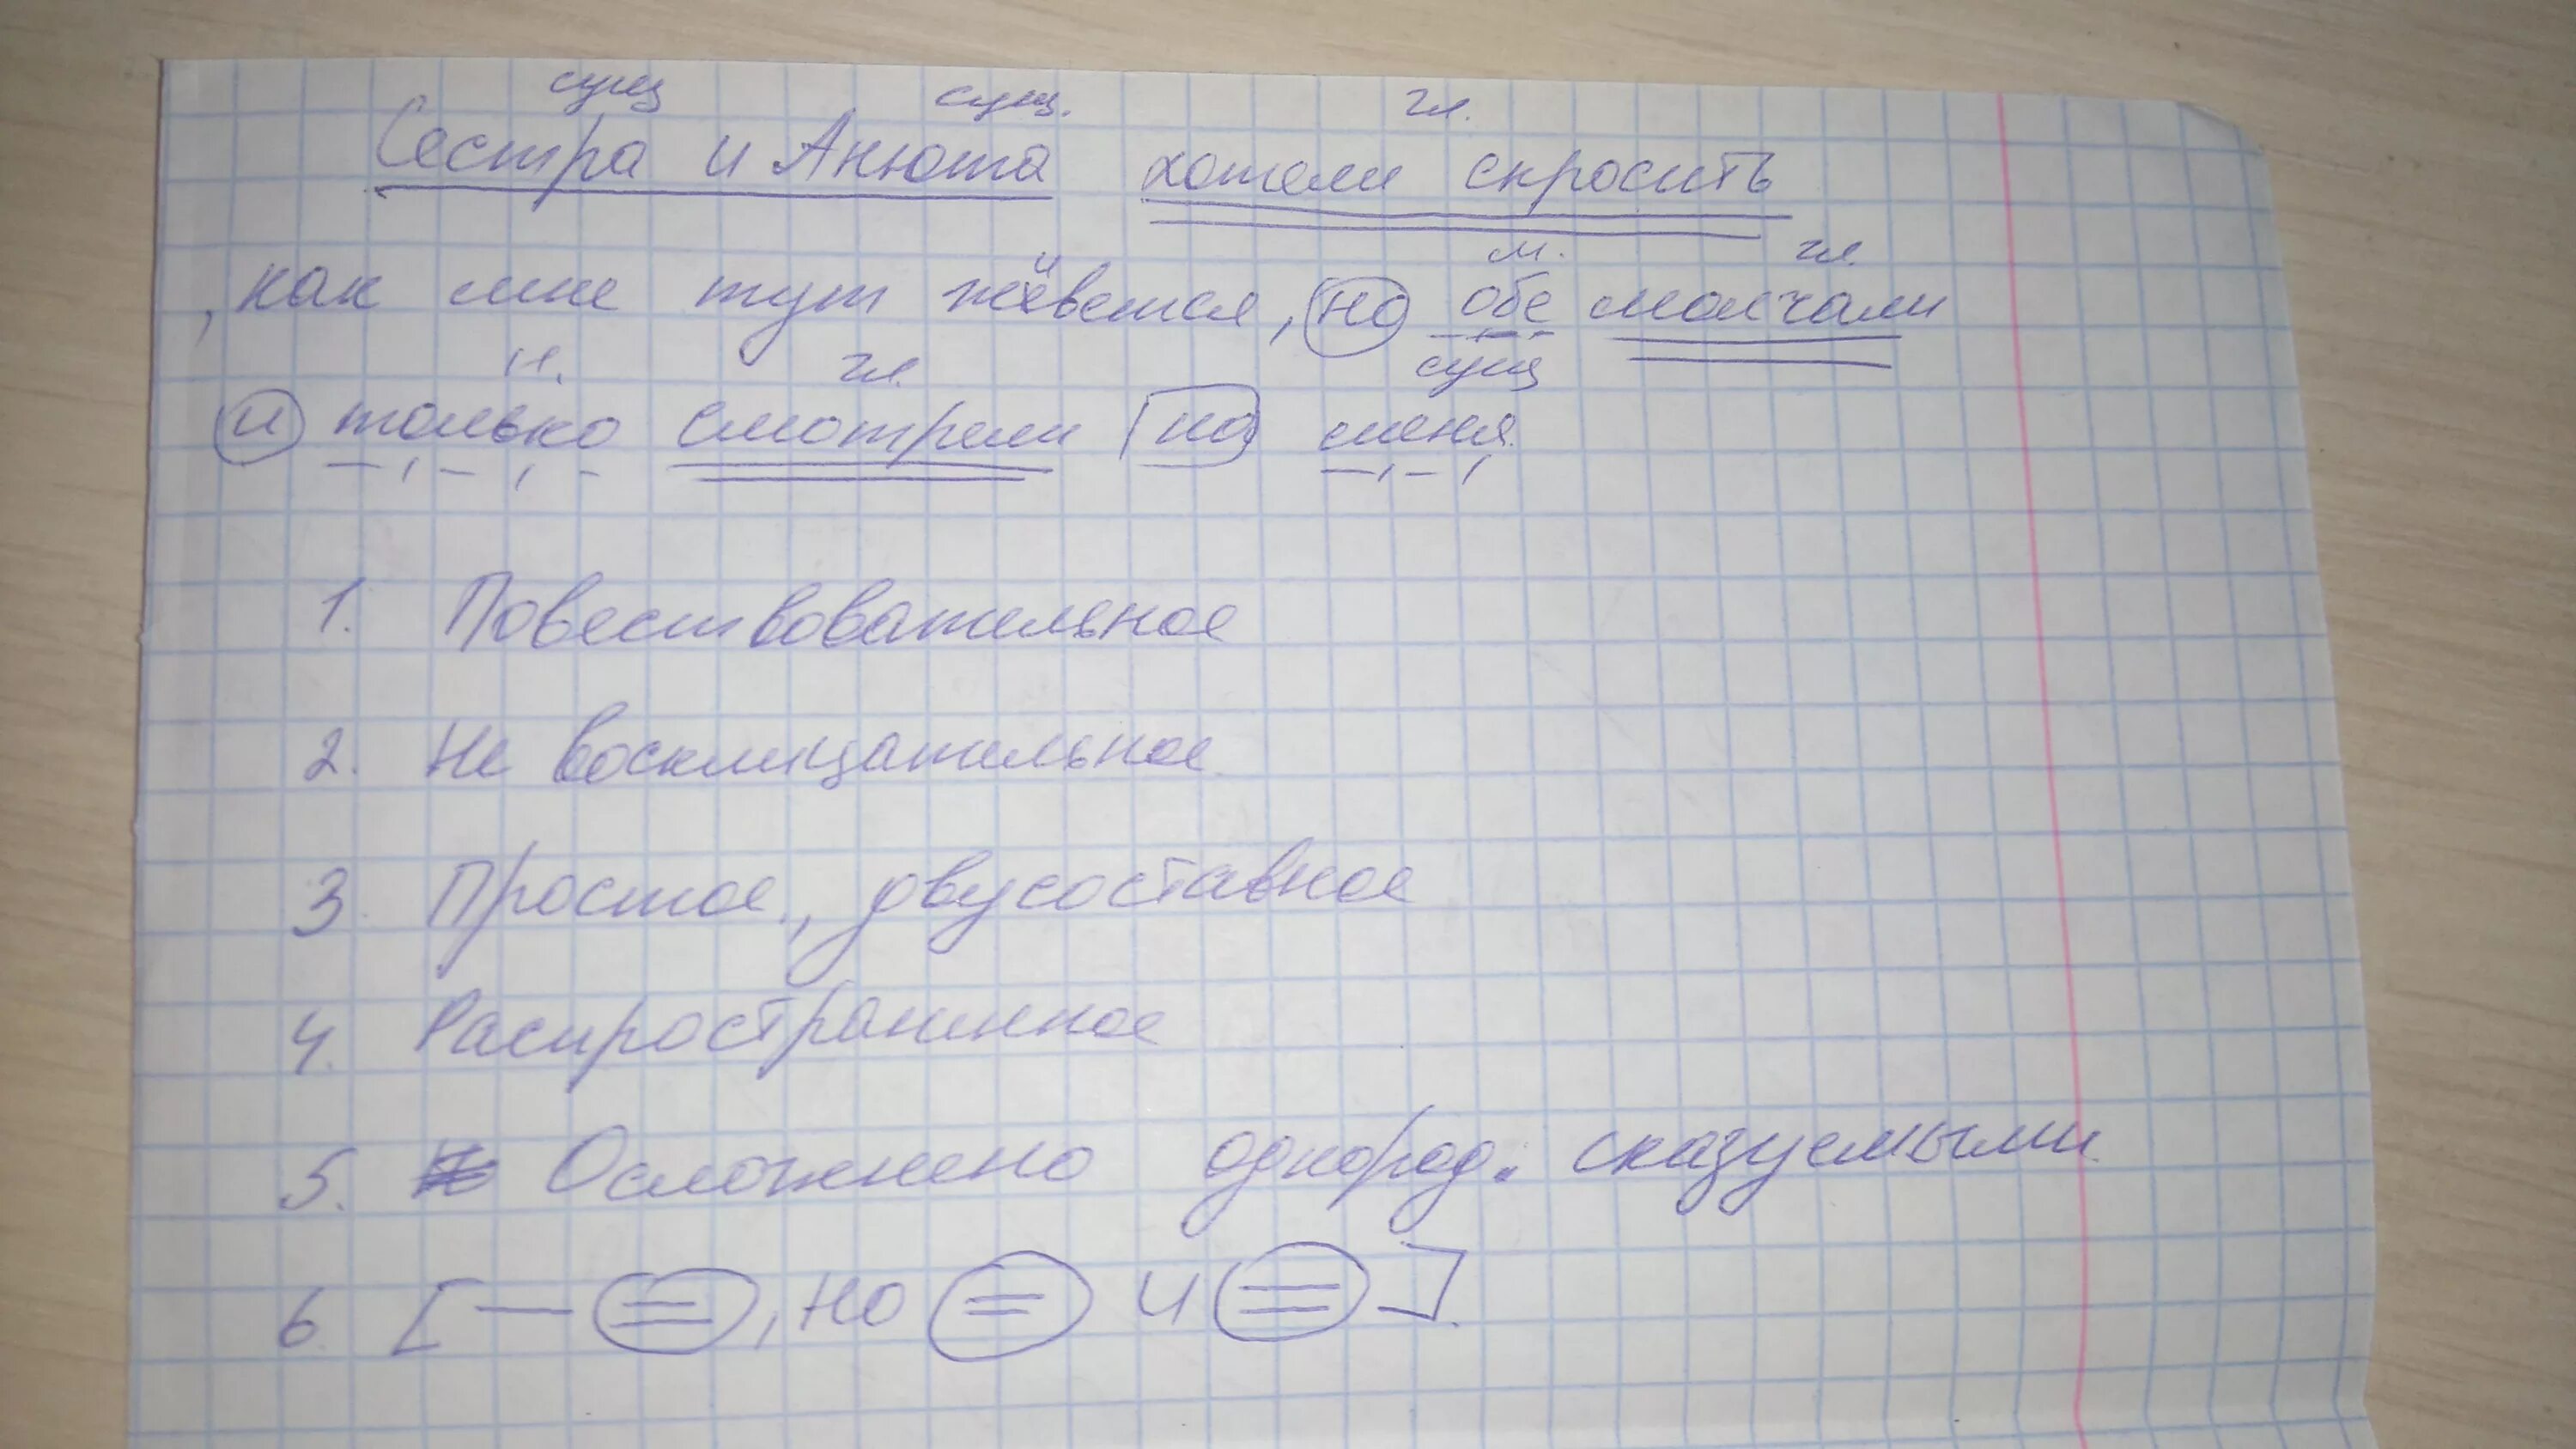 сущ сущ. гл.
Сестра и Анюта хотели скросить
м. гл.
, как мне тут живется, но обе молчали
н. гл. сущ
и только смотрели на меня.
1. Повествовательное
2. Не восклицательное
3. Простое, двусоставное
4. Распространенное
5. Осложнено однород. сказуемыми
6. [— =, но = и =].